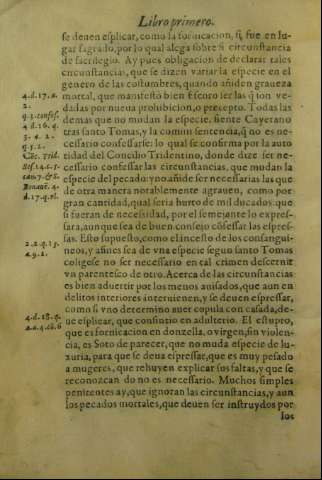 Libro primero.
se deuen esplicar, como la fornicacion, si, fue en lu-
gar sagrado, por lo qual alega sobre si circunstancia
de sacrilegio. Ay pues obligacion de declarar tales
circunstancias, que se dizen variar la especie en el
genero de las costumbres, quando añiden graueza
mortal, que manifiesto bien escuro ier las q̃ son ve-
dadas por nueua prohibicion, o precepto. Todas las
demas que no mudan la especie, siente Cayetano
tras santo Tomas, y la comun sentencia, q̃ no es ne-
cessario confessarse: lo qual se confirma por la auto
ridad del Concilio Tridentino, donde dize ser ne-
cessario confessar las circunstancias, que mudan la
especie del pecado: y no añide ser necessarias las que
de otra manera notablemente agrauen, como por
gran cantidad, qual seria hurto de mil ducados. que
si fueran de necessidad, por el semejante lo expres-
sara, aunque sea de buen consejo cõfessar las espres-
sas. Esto supuesto, como el incesto de los consangui-
neos, y afines sea de vna especie segun santo Tomas
coligese no ser necessario en tal crimen descernir
vn parentesco de otro. Acerca de las circunstancias
es bien aduertir por los menos auisados, que aun en
delitos interiores interuienen, y se deuen espressar,
como si vno determino auer copula con casada, de-
ue esplicar, que consintio en adulterio. El estupro,
que es fornicacion en donzella, o virgen, sin violen-
cia, es Soto de parecer, que no muda especie de lu-
xuria, para que se deua espressar, que es muy pesado
a mugeres, que rehuyen explicar sus faltas, y que se
reconozcan do no es necessario. Muchos simples
penitentes ay, que ignoran las circunstancias, y aun
los pecados mortales, que deuen ser instruydos por
los
4.d.17.q.
2.
q.5. confes.
4 d.16. q.
3. a. 2.
q.5.2.
Cõc. Trid.
Ses.14.c.5.
can.7.&
Bonauẽ. 4.
d.17.q.vl.
2.2.q.15.
a.9.2.
4.d.18.q.
2.a.4.c.6.6